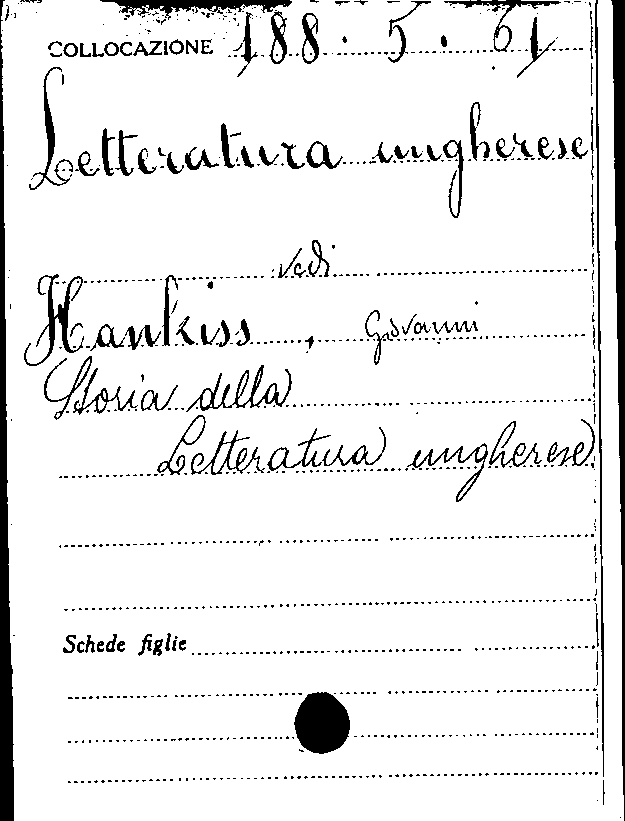 COLLOCAZIONE 188. 5. 61
Letteratura ungherese
vedi
Hankiss, Giovanni
Storia della
Letteratura ungherese
Schede figlie